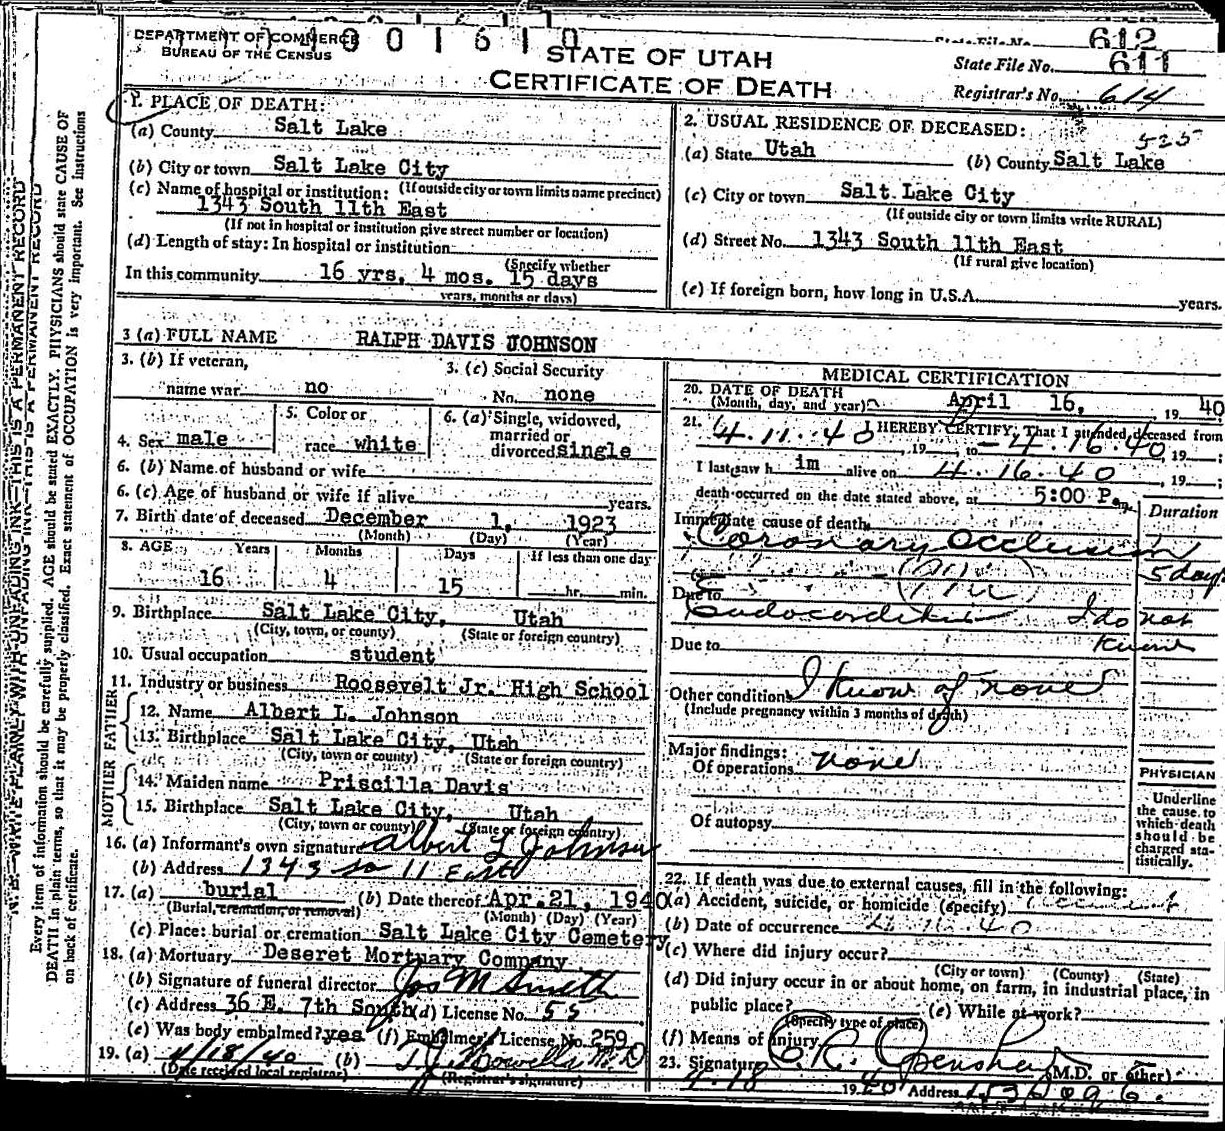 DEPARTMENT OF COMMERCE
BUREAU OF THE CENSUS
STATE OF UTAH
CERTIFICATE OF DEATH
State File No. 612
State File No. 611
Registrar's No. 614
1. PLACE OF DEATH:
(a) County Salt Lake
(b) City or town Salt Lake City
(If outside city or town limits name precinct)
(c) Name of hospital or institution:
1343 South 11th East
(If not in hospital or institution give street number or location)
(d) Length of stay: In hospital or institution
(Specify whether
In this community 16 yrs. 4 mos. 15 days
years, months or days)
2. USUAL RESIDENCE OF DECEASED:
525
(a) State Utah (b) County Salt Lake
(c) City or town Salt Lake City
(If outside city or town limits write RURAL)
(d) Street No. 1343 South 11th East
(If rural give location)
(e) If foreign born, how long in U.S.A. years.
3 (a) FULL NAME RALPH DAVIS JOHNSON
3. (b) If veteran,
name war no
3. (c) Social Security
No. none
4. Sex male
5. Color or
race white
6. (a) Single, widowed,
married or
divorced single
6. (b) Name of husband or wife
6. (c) Age of husband or wife if alive years.
7. Birth date of deceased December 1, 1923
(Month) (Day) (Year)
8. AGE Years Months Days If less than one day
16 4 15 hr. min.
9. Birthplace Salt Lake City, Utah
(City, town, or county) (State or foreign country)
10. Usual occupation student
11. Industry or business Roosevelt Jr. High School
FATHER
12. Name Albert L. Johnson
13. Birthplace Salt Lake City, Utah
(City, town or county) (State or foreign country)
MOTHER
14. Maiden name Priscilla Davis
15. Birthplace Salt Lake City, Utah
(City, town or county) (State or foreign country)
16. (a) Informant's own signature Albert L Johnson
(b) Address 1343 So 11 East
17. (a) burial (b) Date thereof Apr. 21, 1940
(Burial, cremation, or removal) (Month) (Day) (Year)
(c) Place: burial or cremation Salt Lake City Cemetery
18. (a) Mortuary Deseret Mortuary Company
(b) Signature of funeral director Jos M Smith
(c) Address 36 E. 7th South (d) License No. 55
(e) Was body embalmed? yes (f) Embalmer's License No. 259
19. (a) 4/18/40 (b) Howells M.D
(Date received local registrar) (Registrar's signature)
MEDICAL CERTIFICATION
20. DATE OF DEATH
(Month, day, and year) April 16, 1940
21. I HEREBY CERTIFY, That I attended deceased from
4.11.40, 19, to 4.16.40, 19 ;
I last saw h im alive on 4.16.40, 19 ;
death occurred on the date stated above, at 5:00 P m.
Duration
Immediate cause of death
Coronary Occlusion
5 days
Due to
Endocarditis I do not
Due to know
Other conditions I know of none
(Include pregnancy within 3 months of death)
Major findings:
Of operations none
Of autopsy
PHYSICIAN
Underline
the cause to
which death
should be
charged sta-
tistically.
22. If death was due to external causes, fill in the following:
(a) Accident, suicide, or homicide (specify)
(b) Date of occurrence
(c) Where did injury occur?
(City or town) (County) (State)
(d) Did injury occur in or about home, on farm, in industrial place, in
public place? (e) While at work?
(Specify type of place)
(f) Means of injury
23. Signature C.R. Openshaw (M.D. or other)
4.18 1940 Address
N. B.—WRITE PLAINLY, WITH UNFADING INK—THIS IS A PERMANENT RECORD
Every item of information should be carefully supplied. AGE should be stated EXACTLY. PHYSICIANS should state CAUSE OF
DEATH in plain terms, so that it may be properly classified. Exact statement of OCCUPATION is very important. See instructions
on back of certificate.